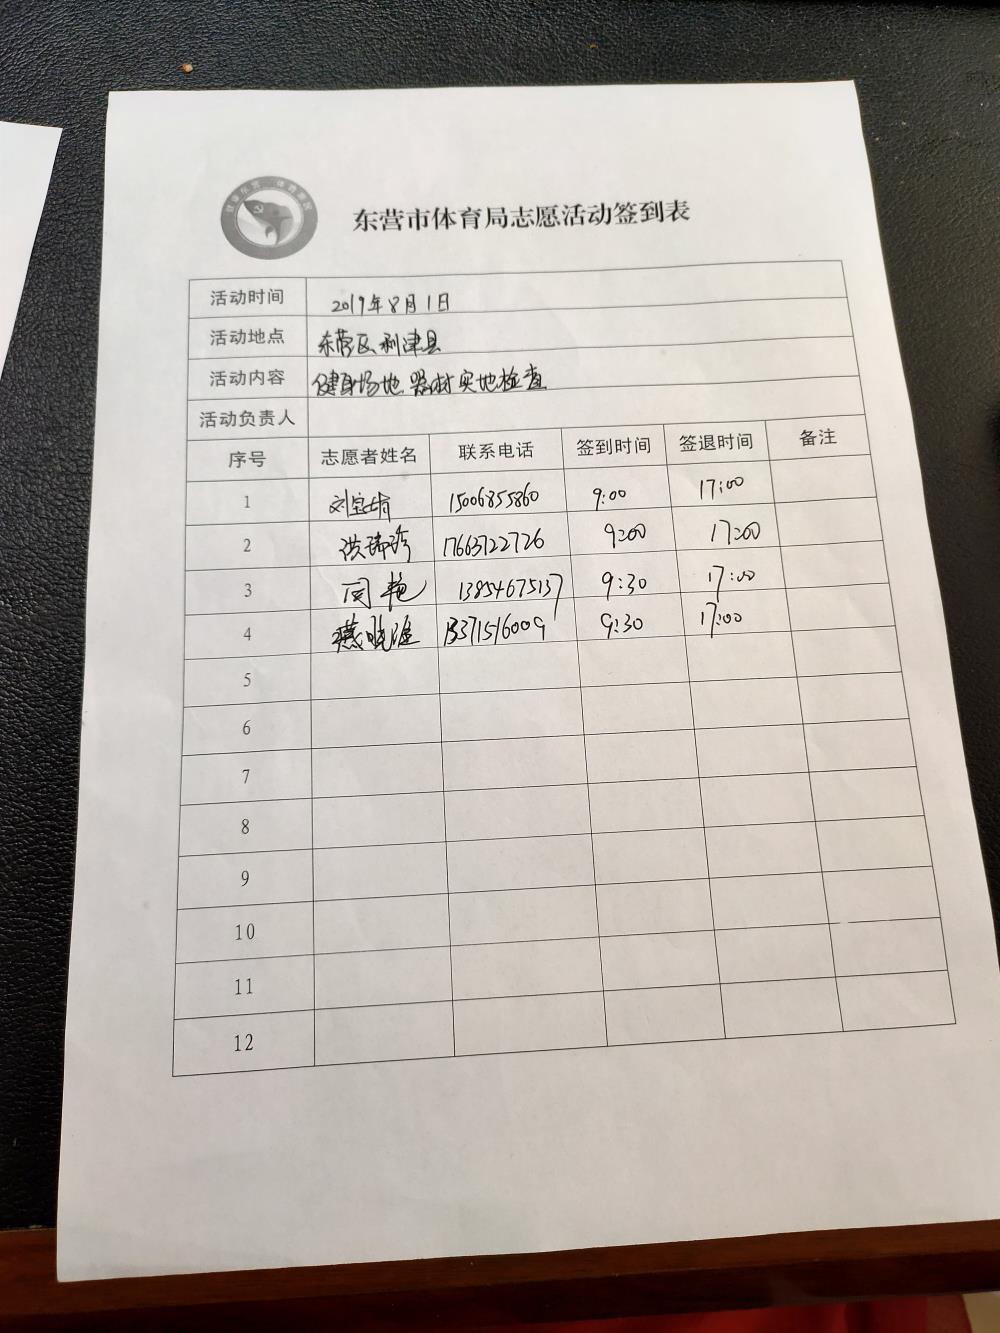 东营市体育局志愿活动签到表
活动时间 2019年8月1日
活动地点 东营区利津县
活动内容 健身场地器材实地检查
活动负责人
序号 志愿者姓名 联系电话 签到时间 签退时间 备注
1 15006855860 9:00 17:00
2 洪瑞珍 17663722726 9:00 17:00
3 闫艳 13854675137 9:30 17:00
4 13371516009 9:30 17:00
5
6
7
8
9
10
11
12